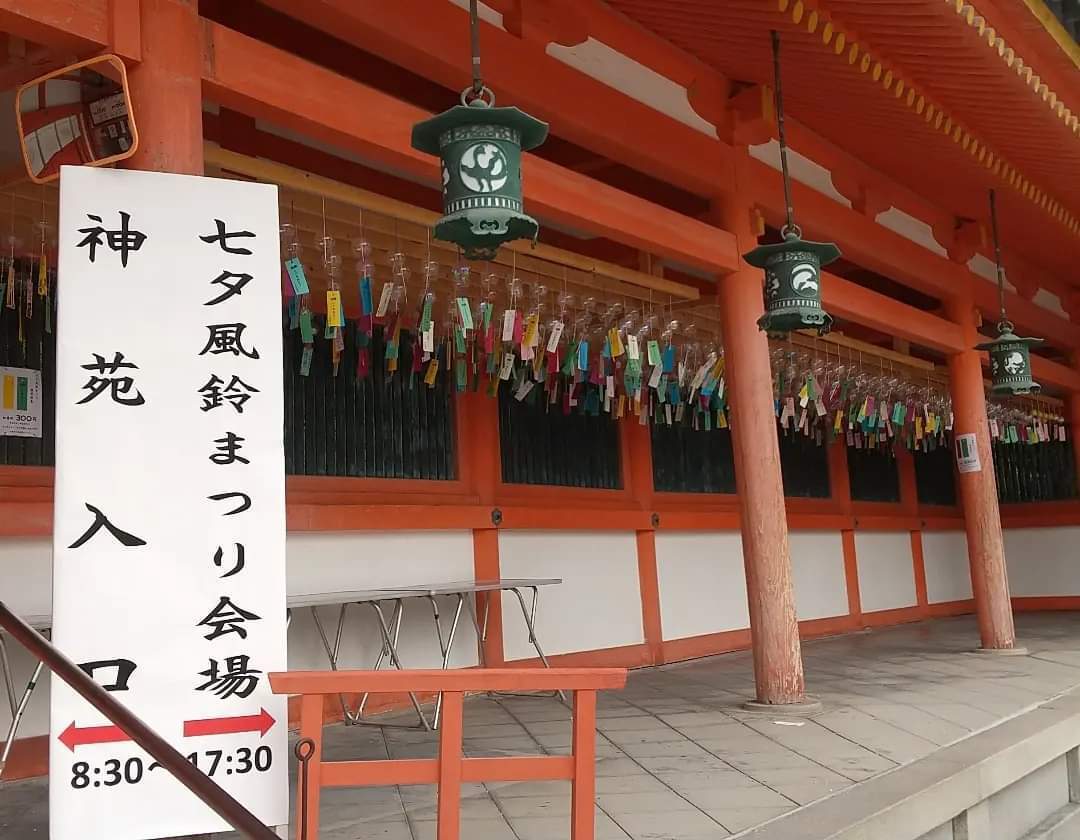 七夕風鈴まつり会場
神苑入口
8:30～17:30
300